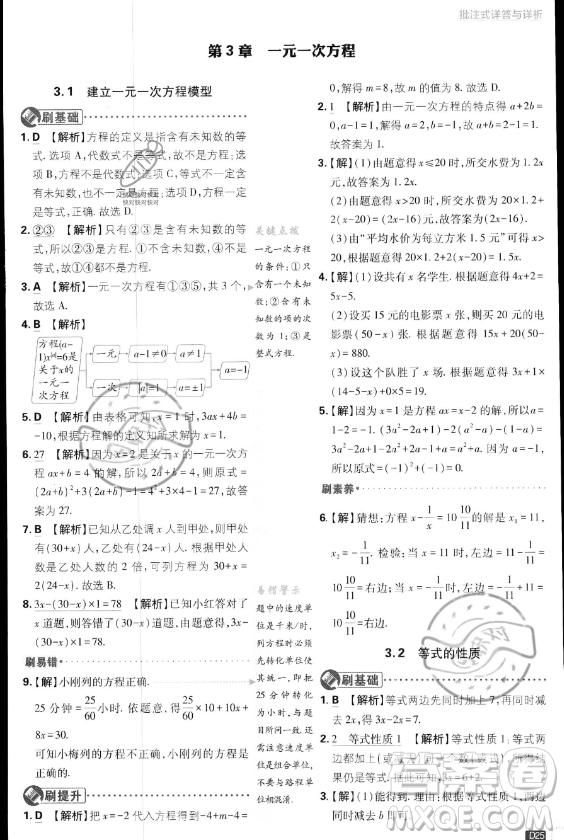 批注式详答与详析
第3章 一元一次方程
3.1 建立一元一次方程模型
刷基础
1. D 【解析】方程的定义是指含有未知数的等
式,选项 A,代数式不是等式,故不是方程;选
项 B,方程不含等号,不是方程;选项 C,不含
有未知数,也不是方程;选项 D,方程含有未知
是等式,正确. 故选 D.
2. ②③ 【解析】只有②③是含有未知数的等
式,所以②③是方程. ①不含未知数,④不是等
式,故①④都不是方程. 故答案为②③.
3. A 【解析】一元一次方程有①③⑤,共 3 个,
故选 A.
4. B 【解析】
方程(a-
1)x|a|=6是
关于x的
一元一
次方程
一元 a-1≠0 a≠1
一次 |a|=1 a=±1
a=-1
5. D 【解析】由表格可知,x=1 时,3ax+4b=
-10,根据方程的解的定义知所求解为 x=1.
6. 27 【解析】因为 x=2 是关于 x 的一元一次
方程 ax+b=4 的解,所以 2a+b=4,则原式=
(2a+b)²+3(2a+b)-1=4²+3×4-1=27. 故答案
为 27.
7. B 【解析】已知从乙处调 x 人到甲处,则甲处
有(30+x)人,乙处有(24-x)人. 根据甲处的
人数是乙处人数的 2 倍,可列方程为 30+x=
2(24-x). 故选 B.
8. 3x-(30-x)×1=78 【解析】已知小红答对了
x 道题,则答错了(30-x)道题. 根据题意得
3x-(30-x)×1=78.
刷易错
9. 【解】小刚列的方程正确.
25 分钟=25/60小时. 依题意,得(25/60+25/60)x+
8x=30.
可知小梅列的方程不正确,小刚列的方程正确.
刷提升
1. D 【解析】把 x=2 代入方程得
关键点拨
一元一次方程
的条件:①只
含有一个未知
数;②所含未
知数的项的次
数为 1;③是
整式方程.
易错警示
题中的速度单
位是千米/时,
列方程时必须
先将时间的单
位统一,即将
25 分钟转化
为25/60小时,与
题目所问一
致. 还需注意
速度单位是组
合单位,不要
与路程单位相
混淆.
0,解得 m=8,故 m 的值为 8. 故选 D.
2. 1 【解析】由一元一次方程的特点得 a+2b=
0,a-1=0,故 a=1. 所以 2a+2b=a+
a+2b=1+0=1.
3. 【解】(1)由题意得 x≤20 时,所交水费为 1.2x
元,故答案为 1.2x.
(2)由题意得 x>20 时,所交水费为 1.2×20+
2(x-20)=(2x-16)元. 故答案为(2x-16).
(3)由“平均水价为每立方米 1.5 元”可得
1.2×20+2(x-20)=1.5x.
4. 【解】(1)设共有 x 名学生. 根据题意得 4x+2=
5x-5.
(2)设买 15 元的电影票 x 张,则买 20 元的电
影票(50-x)张. 根据题意得 15x+20(50-
x)=880.
(3)设这个队胜了 x 场. 根据题意得 3x+1×
(14-5-x)+0×5=19.
5. 【解】因为 x=1 是方程 ax=-x-2 的解,所以 a=
-1-2=-3. (3a²-2a+1)-2(a²-a)-(1-a)=
3a²-2a+1-2a²+2a-1+a=a²+a. 因为 a=-1,
所以原式=(-1)²+(-1)=0.
刷素养
6. 【解】猜想:方程 x-1/x=10 10/11的解是 x₁=11,
x₂=-1/11. 检验:当 x=11 时,左边=11-1/11=
10 10/11=右边;当 x=-1/11时,左边=-1/11+11=
10 10/11=右边.
3.2 等式的性质
刷基础
1. B 【解析】等式两边先同时加上 7,再同时减
去 2x,得 3x-2x=7.
2. 2 等式性质 1 【解析】等式两
边都加上(或减去)
结果仍是等式. 据此可知,3x=6+2.
D25